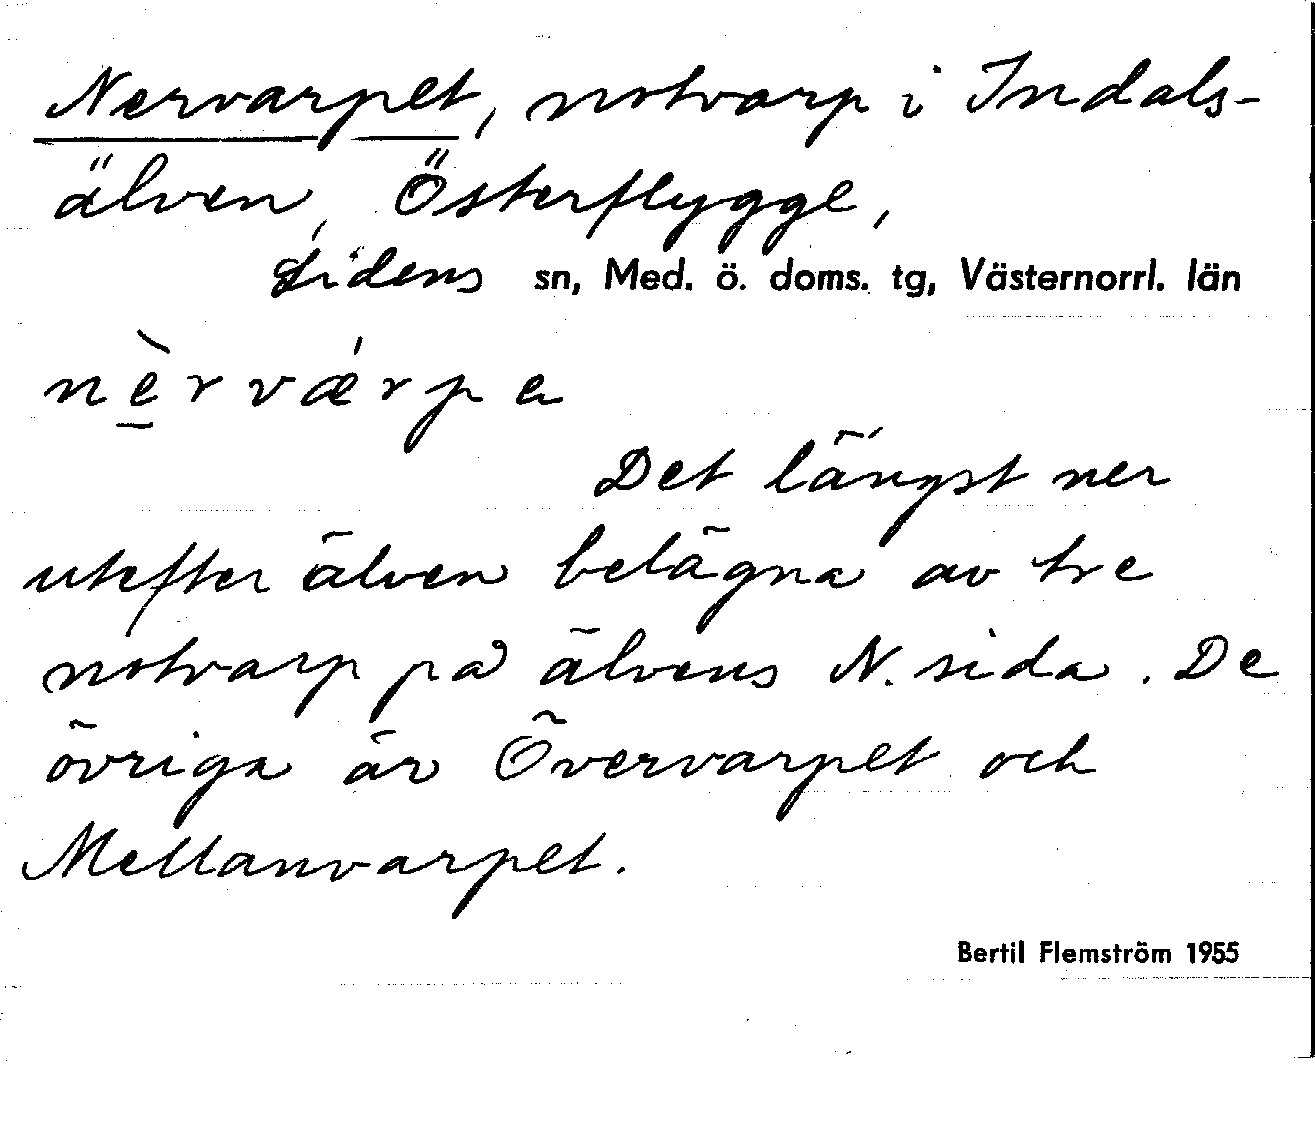 Nervarpet, notvarp i Indals-
älven, Österflygge,
Lidens sn, Med. ö. doms. tg, Västernorrl. län
nè̱rværpa
Det längst ner
utefter älven belägna av tre
notvarp på älvens N. sida. De
övriga är Övervarpet och
Mellanvarpet.
Bertil Flemström 1955